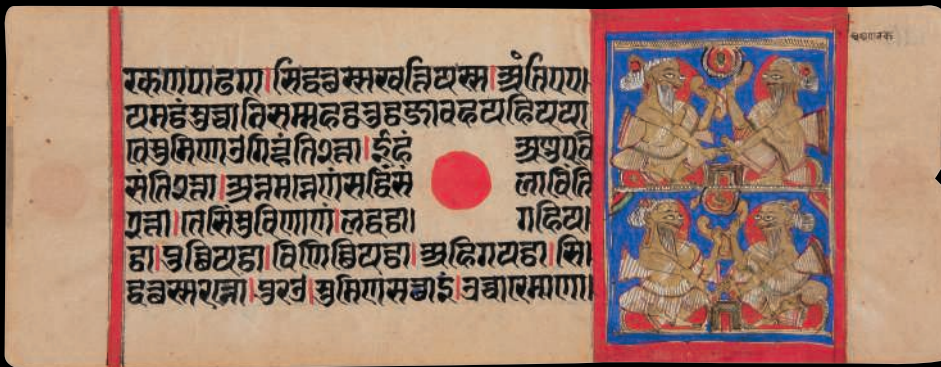 रकणपाढगा।सिद्धत्थस्स खत्तियस्स।अंतिए ए
यमट्ठं सुच्चा निसम्म हट्ठतुट्ठ जाव हयहियया
ते सुमिणे उगिण्हंति २त्ता। ईहं अणुपवि
संति २त्ता।अन्नमन्नेणं सद्धिं सं लाविंति
२त्ता।तेसि सुविणाणं।लद्धट्ठा। गहिय
ट्ठा।पुच्छियट्ठा।विणिच्छियट्ठा।अहिगयट्ठा।सि
द्धत्थस्स रन्नो।पुरउ।सुमिणसत्थाइं।उच्चारेमाणा